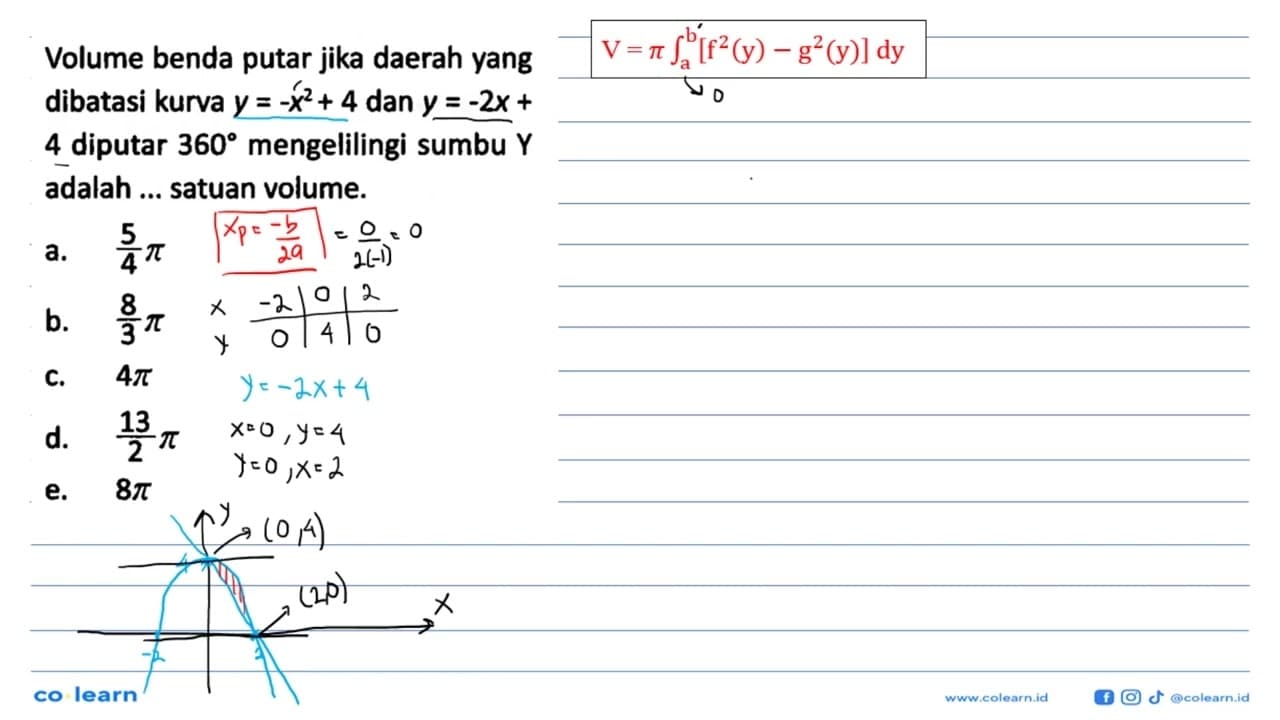 Volume benda putar jika daerah yang
dibatasi kurva y = -x² + 4 dan y = -2x +
4 diputar 360° mengelilingi sumbu Y
adalah ... satuan volume.
a. 5/4 π
b. 8/3 π
c. 4π
d. 13/2 π
e. 8π
xp = -b/2a = 0/2(-1) = 0
x -2 0 2
y 0 4 0
y = -2x + 4
x=0, y=4
y=0, x=2
y
(0,4)
4
(2,0)
x
-2 2
V = π ∫ₐᵇ [f²(y) − g²(y)] dy
0
co learn
www.colearn.id
@colearn.id